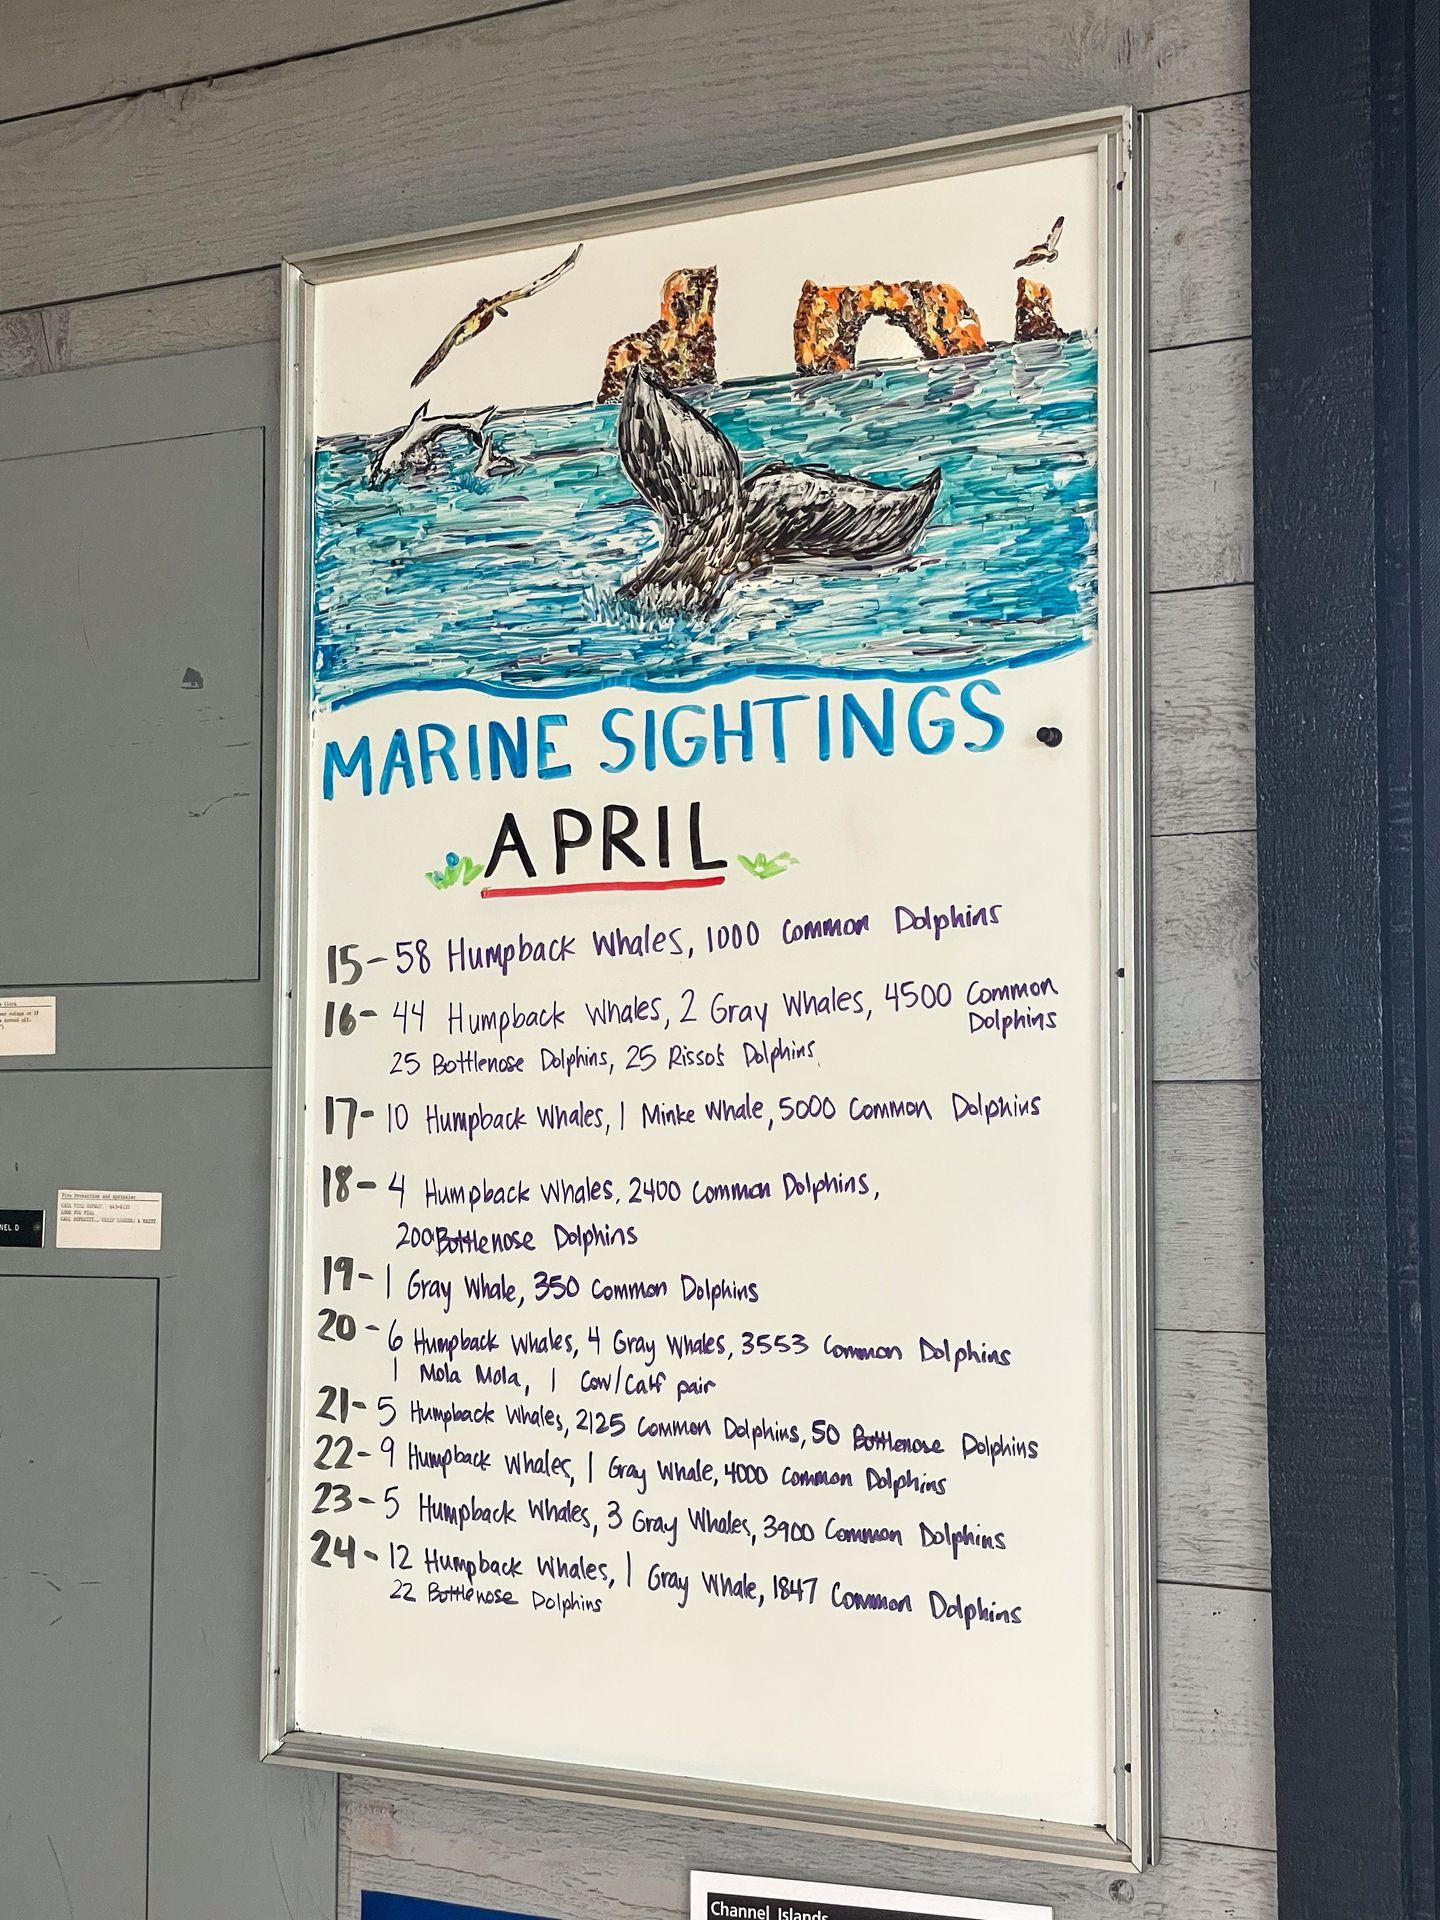 MARINE SIGHTINGS
APRIL
15- 58 Humpback Whales, 1000 Common Dolphins
16- 44 Humpback Whales, 2 Gray Whales, 4500 Common
Dolphins
25 Bottlenose Dolphins, 25 Risso's Dolphins,
17- 10 Humpback Whales, 1 Minke Whale, 5000 Common Dolphins
18- 4 Humpback Whales, 2400 Common Dolphins,
200 Bottlenose Dolphins
19- 1 Gray Whale, 350 Common Dolphins
20- 6 Humpback Whales, 4 Gray Whales, 3553 Common Dolphins
1 Mola Mola, 1 Cow/Calf pair
21- 5 Humpback Whales, 2125 Common Dolphins, 50 Bottlenose Dolphins
22- 9 Humpback Whales, 1 Gray Whale, 4000 Common Dolphins
23- 5 Humpback Whales, 3 Gray Whales, 3900 Common Dolphins
24- 12 Humpback Whales, 1 Gray Whale, 1847 Common Dolphins
22 Bottlenose Dolphins
Fire Protection and Sprinkler
NEL D
Channel Islands